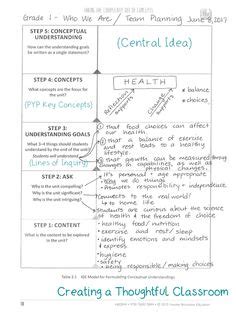 MAKING THE COMPLEXITY OUT OF CONCEPTS
Grade 1 - Who We Are / Team Planning June 8, 2017
STEP 5: CONCEPTUAL
UNDERSTANDING
How can the understanding goals
be written as a single statement?
(Central Idea)
STEP 4: CONCEPTS
What concepts are the focus for
the unit?
(PYP Key Concepts)
HEALTH
balance
choices
STEP 3:
UNDERSTANDING GOALS
What 3-4 things should students
understand by the end of the unit?
Students will understand
(Lines of Inquiry)
that food choices can affect
our health.
that a balance of exercise
and rest leads to a healthy
lifestyle.
that growths can be measured through
changes in capabilities, as well as
physical changes.
STEP 2: ASK WHY
Why is the unit compelling?
Why is the unit significant?
Why is the unit intriguing?
it's personal + age appropriate
they we do things
promotes responsibility + independence
Connects to the real world/
to home.
Students are curious about the science
of health and the freedom of choice
STEP 1: CONTENT
What content is to be explored
in the unit?
nutrition/food
exercise/rest/sleep
identify emotions and mindsets
express
hygiene
safety
being responsible / making choices
Table 3.1 IDE Model for Formulating Conceptual Understandings
Creating a Thoughtful Classroom